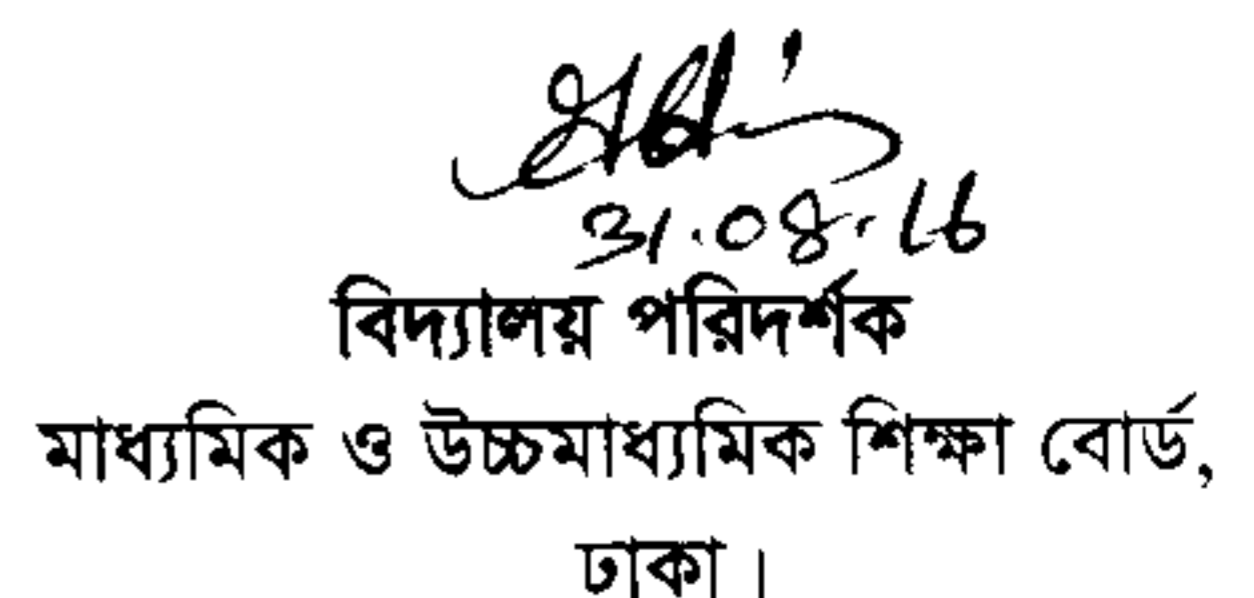 31.08.16
বিদ্যালয় পরিদর্শক
মাধ্যমিক ও উচ্চমাধ্যমিক শিক্ষা বোর্ড,
ঢাকা।